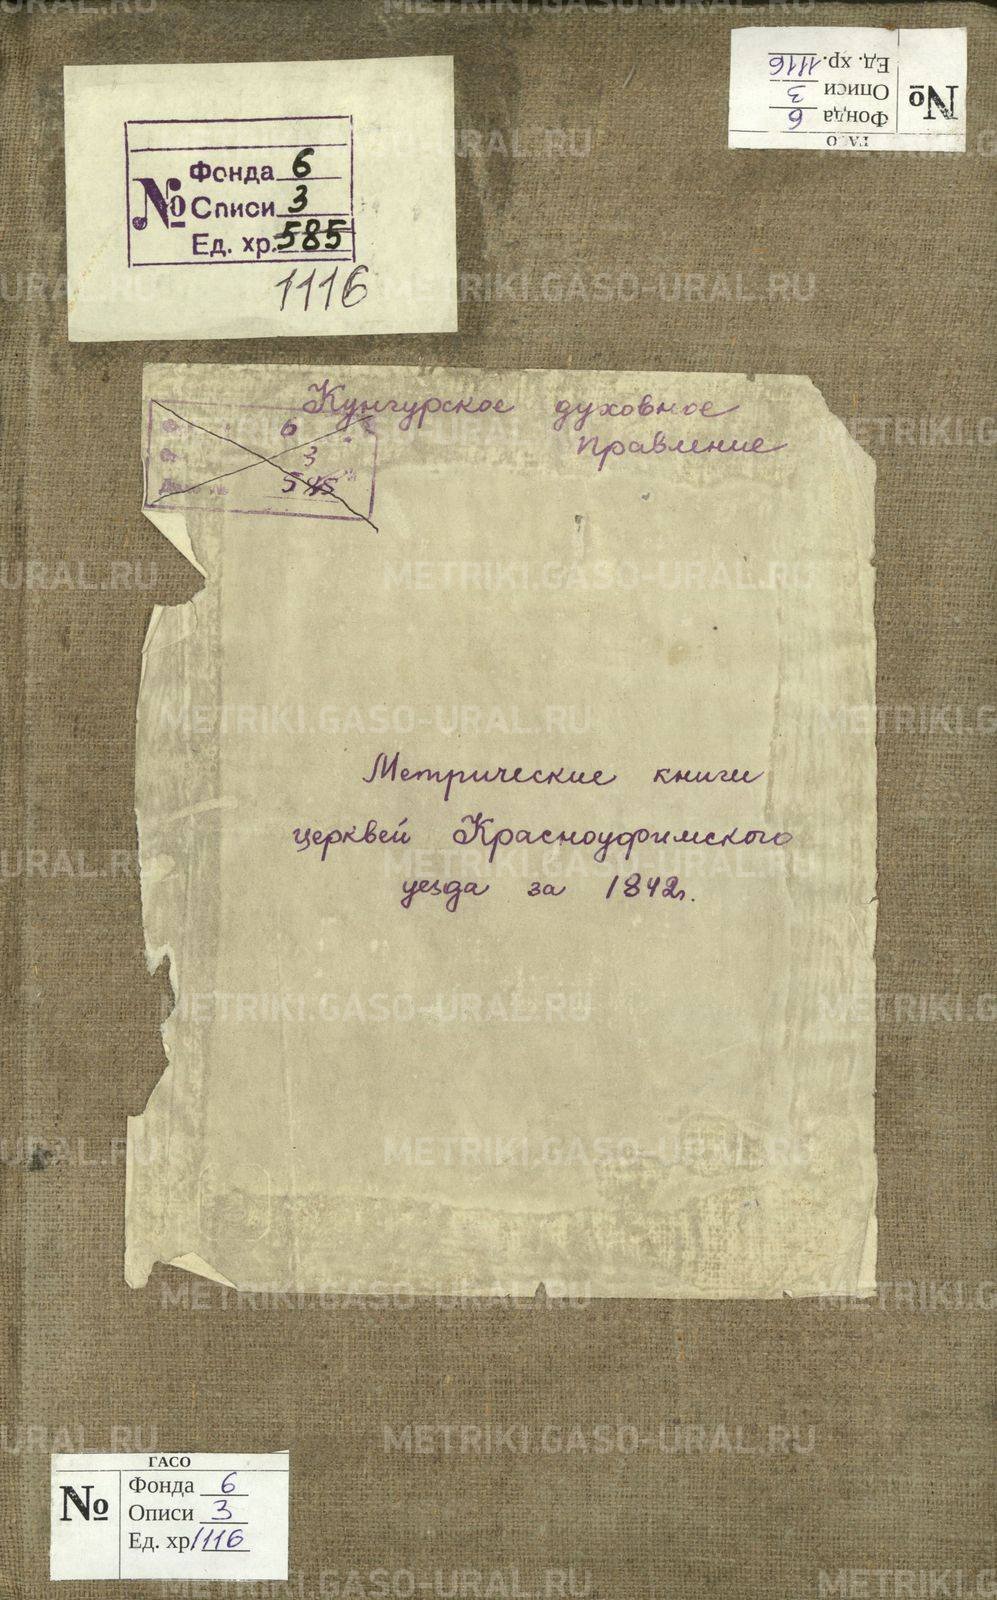 ГАСО
№
Фонда 6
Описи 3
Ед. хр. 1116
№
Фонда 6
Описи 3
Ед. хр. 585
1116
Кунгурское духовное
правление
6
3
Метрические книги
церквей Красноуфимского
уезда за 1842г.
ГАСО
№
Фонда 6
Описи 3
Ед. хр 1116
METRIKI.GASO-URAL.RU